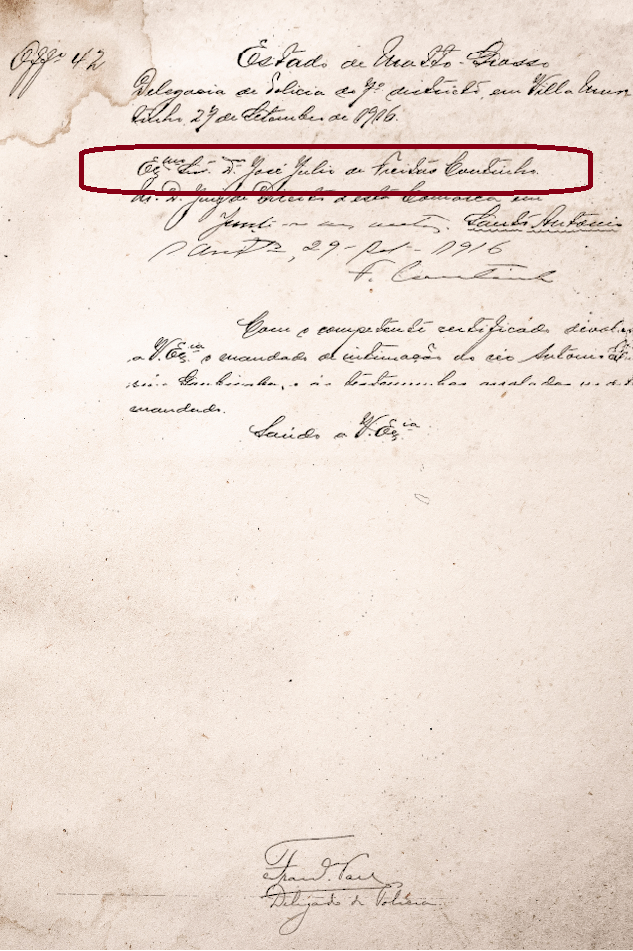 Offº 42
Estado de Matto-Grosso
Delegacia de Policia do 7º districto, em Villa Mur
tinho, 27 de Setembro de 1916.
Exmo Snr. Dr. José Julio de Freitas Coutinho.
M. D. Juiz de Direito desta Comarca em
Santo Antonio
29 - 1916
F. Coutinho
Com o competente certificado devol
a V. Excia o mandado de intimação do réo Antonio
e as testemunhas
mandado.
Saúdo a V. Excia
Delegado de Policia